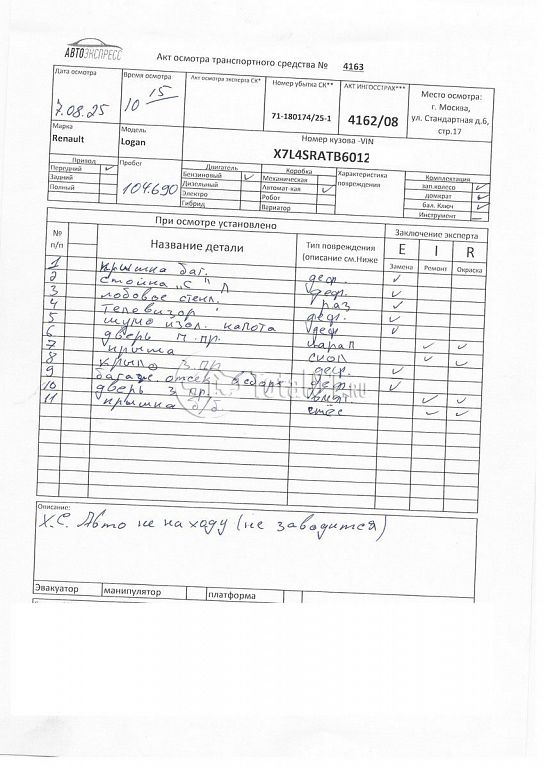 АВТОЭКСПРЕСС
Акт осмотра транспортного средства № 4163
Дата осмотра
7.08.25
Время осмотра
10 15
Акт осмотра эксперта СК*
Номер убытка СК**
71-180174/25-1
АКТ ИНГОССТРАХ***
4162/08
Место осмотра:
г. Москва,
ул. Стандартная д.6,
стр.17
Марка
Renault
Модель
Logan
Номер кузова -VIN
X7L4SRATB6012
Привод
Передний ✓
Задний
Полный
Пробег
104.690
Двигатель
Бензиновый ✓
Дизельный
Электро
Гибрид
Коробка
Механическая
Автомат-кая ✓
Робот
Вариатор
Характеристика
повреждения
Комплектация
зап.колесо ✓
домкрат ✓
бал. Ключ ✓
Инструмент –
№
п/п
При осмотре установлено
Название детали
Тип повреждения
(описание см.Ниже
Заключение эксперта
E I R
Замена Ремонт Окраска
1 крышка баг. деф. ✓
2 Стойка "С" Л деф. ✓
3 лобовое стекл. раз ✓
4 Телевизор деф. ✓
5 шумо изол. капота деф ✓
6 дверь п. пр. царап ✓ ✓
7 крыша скол ✓ ✓
8 крыло з. пр деф. ✓
9 багаж. отсек в сборе деф. ✓
10 дверь з пр. ✓ ✓
11 крышка б/б ✓ ✓
Total.ru
Описание:
Х.С. Авто не на ходу (не заводится)
Эвакуатор манипулятор платформа